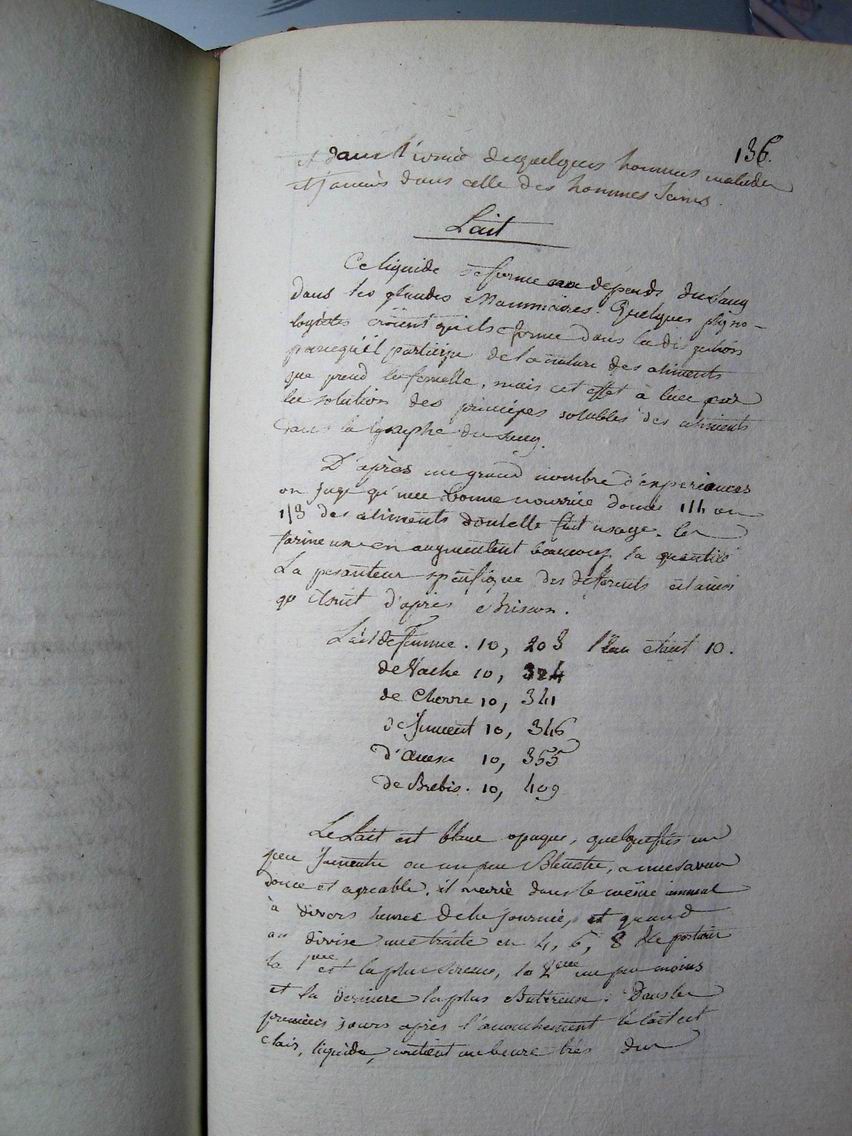 136.
et dans l'urine de quelques hommes malades
et jamais dans celle des hommes sains.
Lait
Ce liquide se forme aux depends du sang
dans les glandes Mammaires. Quelques physio-
logistes croient qu'il se forme dans la digestion
parcequ'il participe de la nature des aliments
que prend la femelle, mais cet effet à lieu par
la solution des principes solubles des aliments
dans la lymphe du sang.
D'après un grand nombre d'experiances
on juge qu'une bonne nourrice donne 1/4 ou
1/3 des aliments dont elle fait usage. les
farineux en augmentent beaucoup la quantité
La pesanteur spésifique des differents est ainsi
qu'il suit d'après Brisson.
Lait de Femme. 10, 203 l'Eau étant 10.
de Vache 10, 324
de Chevre 10, 341
de Jument 10, 346
d'Anesse 10, 355
de Brebis. 10, 409
Le Lait est blanc opaque, quelquefois un
peu Jaunatre ou un peu Bleuatre, a une saveur
douce et agreable. il varie dans le même animal
à divers heures de la journée, et quand
on divise une traite en 4, 6, 8
la 1ere est la plus sereuse, la 2eme un peu moins
et la derniere la plus Butireuse. Dans les
premiers jours après l'accouchement le lait est
clair, liquide, contient un beurre très dur